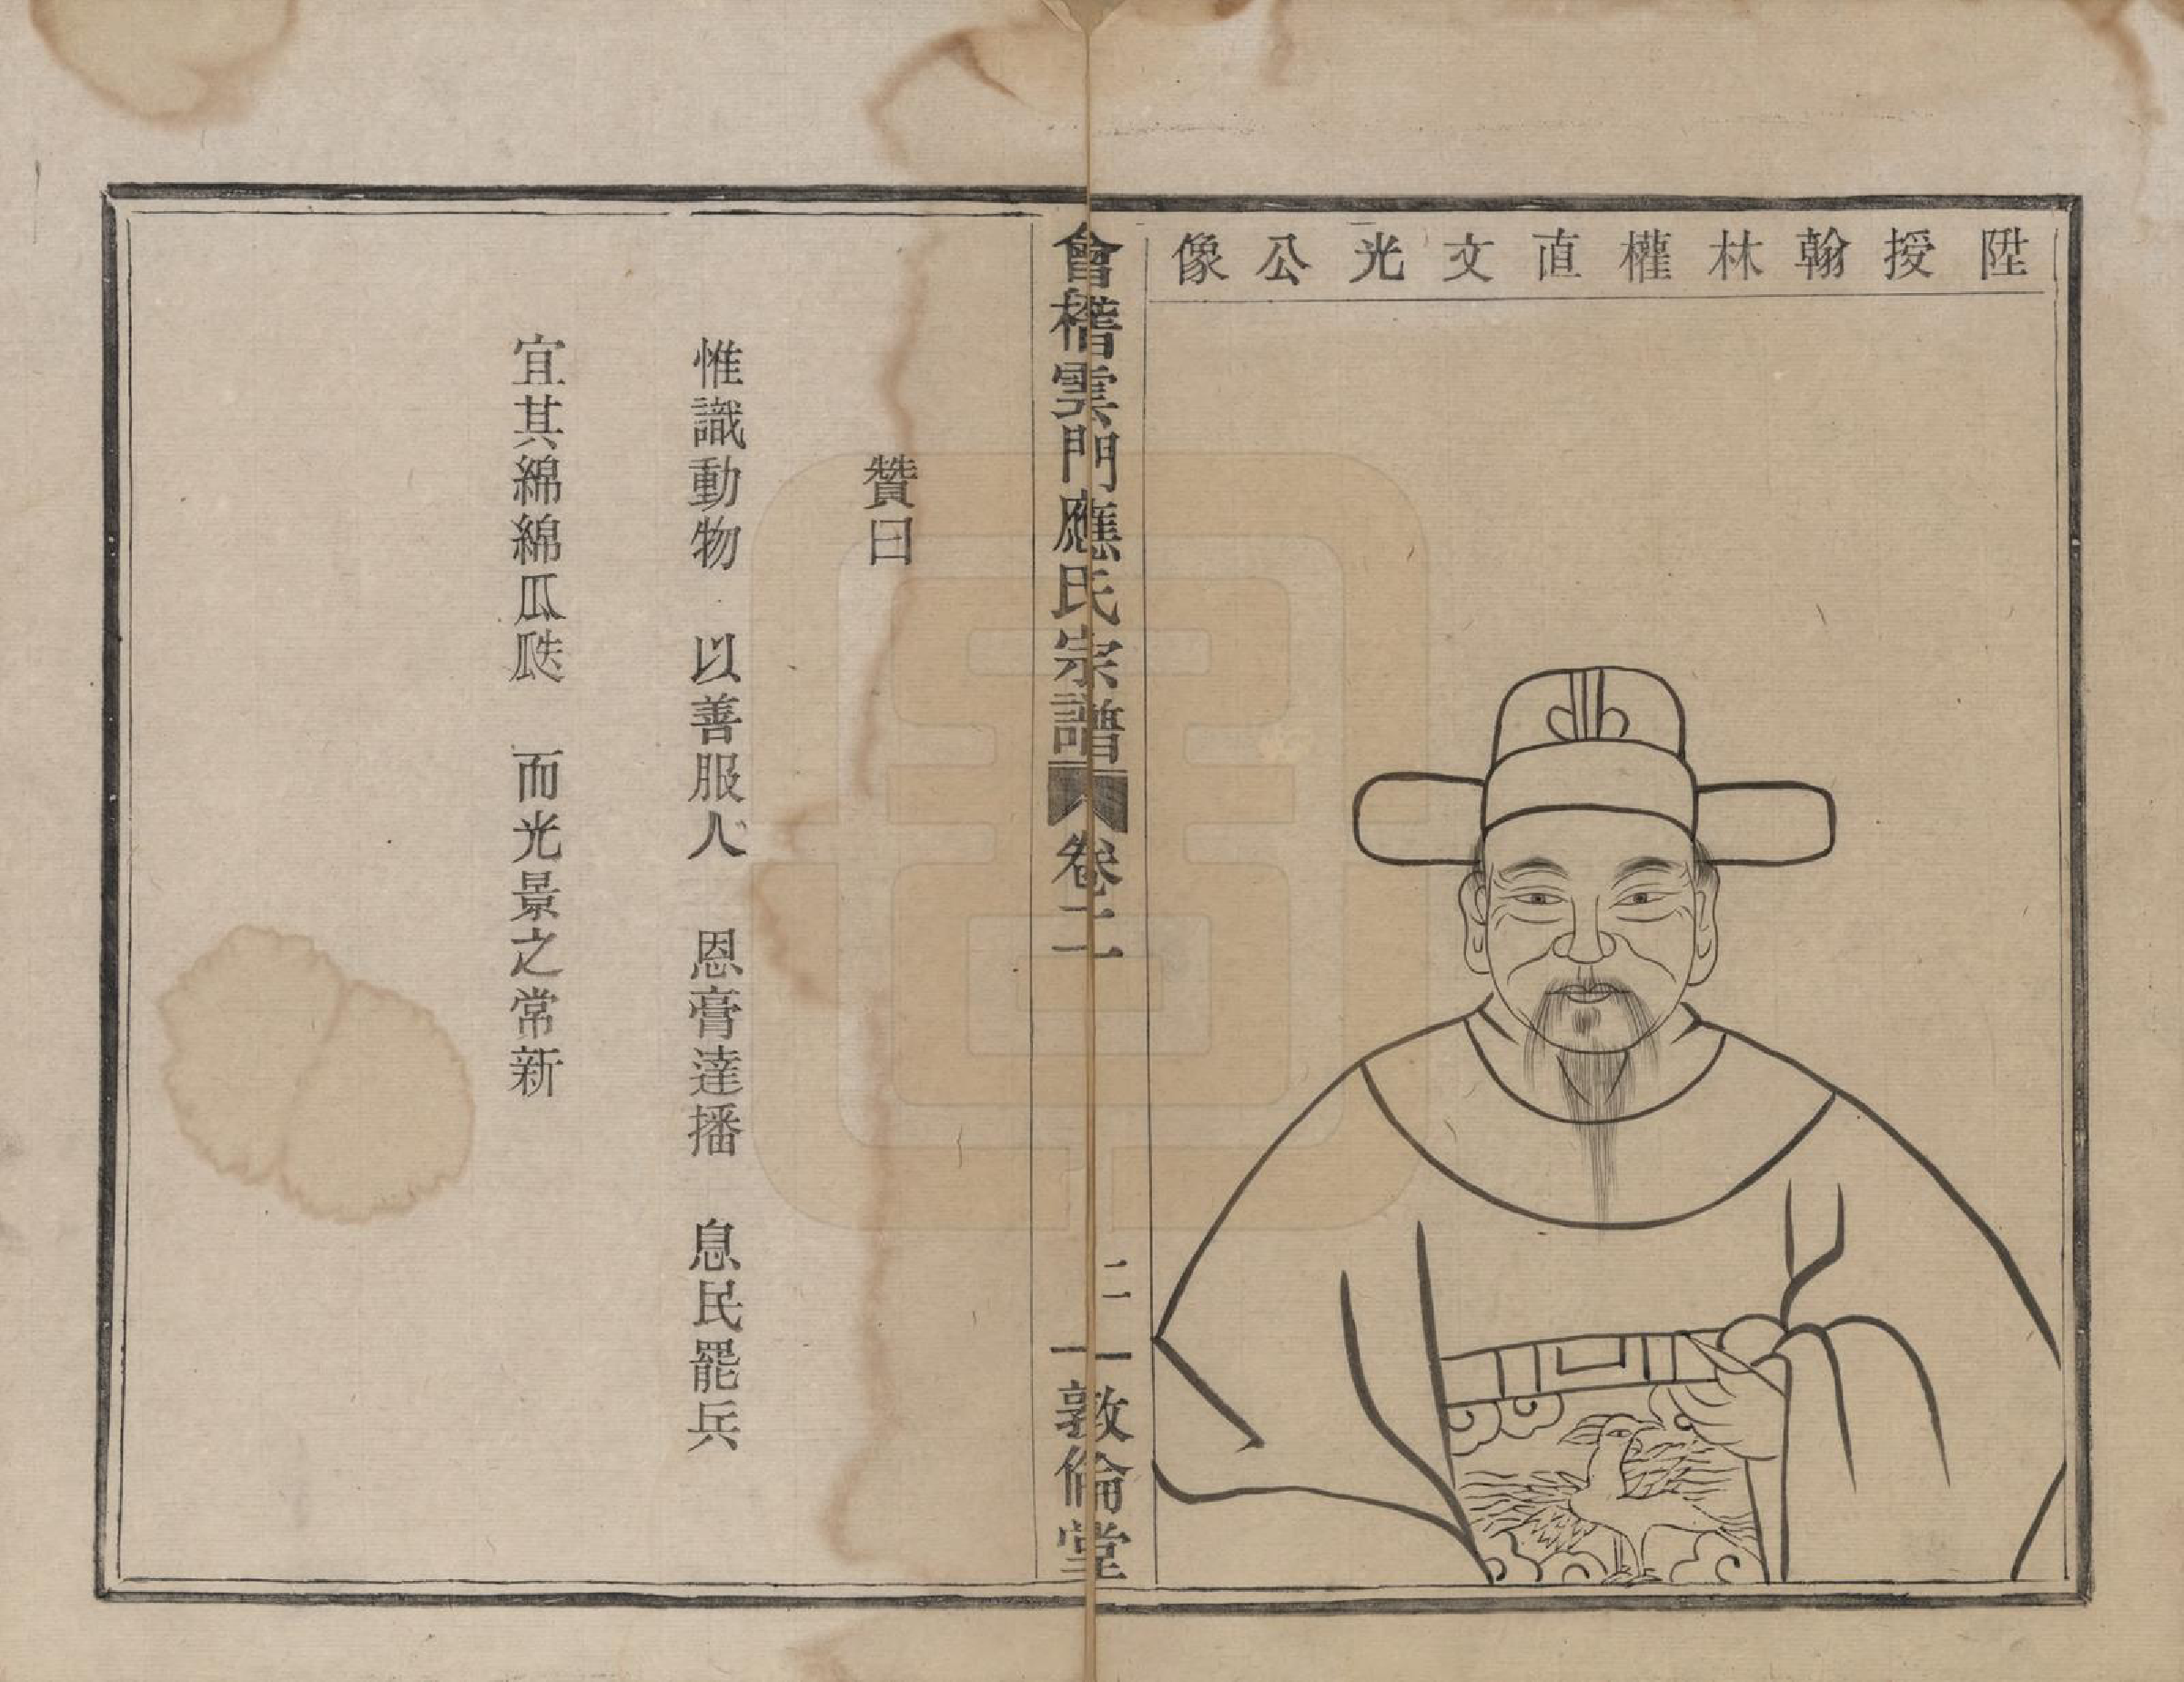 陞授翰林權直文光公像
會稽雲門應氏宗譜 卷二 二 敦倫堂
贊曰
惟識動物 以善服人 恩膏達播 息民罷兵
宜其綿綿瓜瓞 而光景之常新